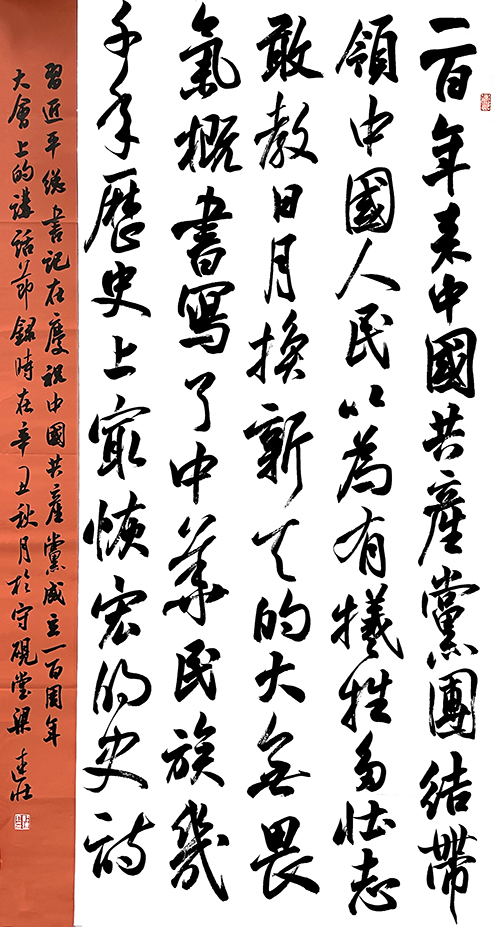 一百年来中國共產黨團結帶
領中國人民以為有犧牲多壯志
敢教日月換新天的大無畏
氣概書寫了中華民族幾
千年歷史上最恢宏的史詩
習近平總書記在慶祝中國共產黨成立一百周年
大會上的講話節錄時在辛丑秋月於守硯堂梁